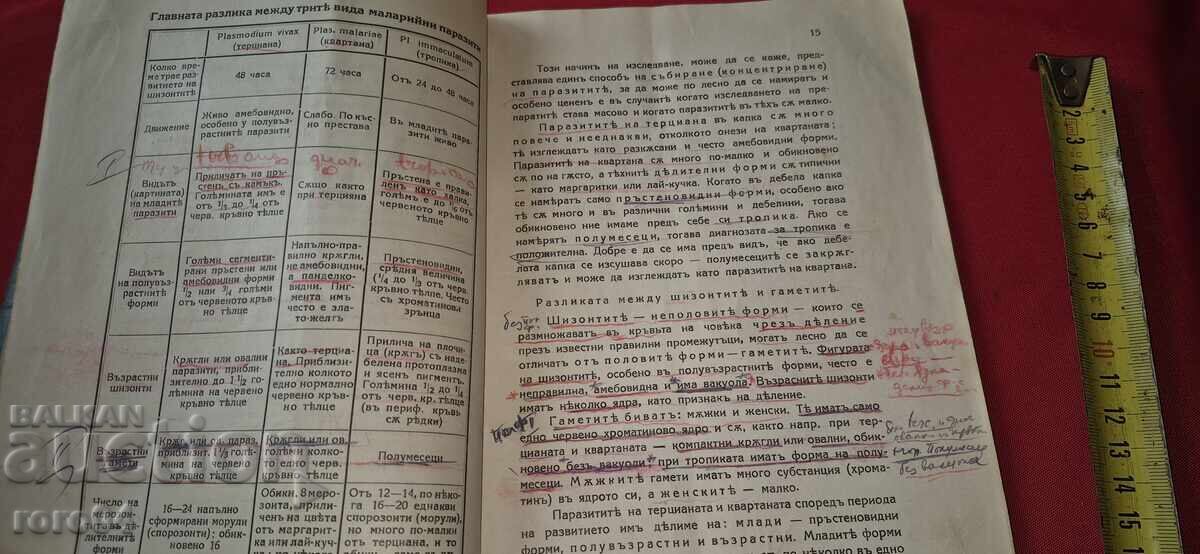 Главната разлика между тритѣ вида маларийни паразити
Plasmodium vivax
(терциана)
Plas. malariae
(квартана)
Pl. immaculatum
(тропика)
Колко вре-
ме трае раз-
витието на
шизонтитѣ
48 часа
72 часа
Отъ 24 до 48 часа
Движение
Живо амебовидно,
особено у полувъз-
растнитѣ паразити
Слабо. По къс-
но престава
Въ младитѣ пара-
зити живо
Видътъ
(картината)
на младитѣ
паразити
Приличатъ на пръ-
стенъ съ камъкъ.
Големината имъ е
отъ 1/3 до 1/4 отъ
черв. кръвно тѣлце
Сжщо както
при терцияна
Пръстена е прави-
ленъ като халка,
големъ е до 1/6 отъ
червеното кръвно
тѣлце
Видътъ
на полувъз-
растнитѣ
форми
Голѣми сегменти-
рани пръстени или
амебовидни форми
1/2 или 3/4 голѣми
отъ червеното кръв-
но тѣлце
Напълно-пра-
вилно кржгли,
не амебовидни,
а панделко-
видни. Пиг-
мента имъ
често е зла-
то-желтъ
Пръстеновидни,
срѣдня величина
(1/4 до 1/3 отъ черв.
кръвно тѣлце. Често
съ хроматинови
зрънца
Възрастни
шизонти
Кржгли или овални
паразити, прибли-
зително до 1 1/2 го-
лѣмина на червено
кръвно тѣлце
Както терциа-
на. Приблизи-
телно колкото
едно нормално
червено кръв-
но тѣлце
Прилича на плочи-
ца (кржгъ) съ на-
бедена протоплазма
и ясенъ пигментъ.
Големина 1/2 до 1/3
отъ черв. кр. тѣлце
(въ периф. кръвь
сж рѣдки)
Възрастни
гамети
Кржг. или ов. параз.
приблизит. 1 1/3 го-
лѣмина на червено
кръвно тѣлце
Кржгли или ов.
голѣми колко-
то едно черв.
кръвно тѣлце
Полумесеци
Число на
мерозо-
титѣ въ дѣ-
лителнитѣ
форми
16—24 напълно
сформирани морули
(спорозонти); обик-
новено 16
Обикн. 8 меро-
зоита, прили-
чен на цвѣта
отъ маргарит-
ка или лай-куч-
Отъ 12—14, по нѣко-
га 16—20 еднакви
спорозонти (морули),
но много по-малки
отъ терциана, и то
15
Този начинъ на изследване, може да се каже, пред-
ставлява единъ способъ на събиране (концентриране)
на паразититѣ, за да може по лесно да се намиратъ и
особено цененъ е въ случаитѣ когато изследването на пре-
паратитѣ става масово и когато паразититѣ въ тѣхъ сж малко.
Паразититѣ на терциана въ капка сж много
повече и нееднакви, отколкото онези на квартаната;
тѣ изглеждатъ като разкжсани и често амебовидни форми.
Паразититѣ на квартана сж много по-малко и обикновено
сж по на гжсто, а тѣхнитѣ дѣлителни форми сж типични
— като маргаритки или лай-кучка. Когато въ дебела капка
се намѣратъ само пръстеновидни форми, особено ако
тѣ сж много и въ различни голѣмини и дебелини, тогава
обикновено ние имаме предъ себе си тропика. Ако се
намѣрятъ полумесеци, тогава диагнозата за тропика е
положителна. Добре е да се има предъ видъ, че ако дебе-
лата капка се изсушава скоро — полумесецитѣ се закржг-
ляватъ и може да изглеждатъ като паразититѣ на квартана.
Разликата между шизонтитѣ и гаметитѣ.
Шизонтитѣ — неполовитѣ форми — които се
размножаватъ въ кръвьта на човѣка чрезъ дѣление
презъ известни правилни промежутъци, могатъ лесно да се
отличатъ отъ половитѣ форми—гаметитѣ. Фигурата
на шизонтитѣ, особено въ полувъзрастнитѣ форми, често е
неправилна, амебовидна и има вакуола. Възраснитѣ шизонти
иматъ нѣколко ядра, като признакъ на дѣление.
Гаметитѣ биватъ: мжжки и женски. Тѣ иматъ само
едно червено хроматиново ядро и сж, както напр. при тер-
цианата и квартаната — компактни кржгли или овални, обик-
новено безъ вакуоли; при тропиката иматъ форма на полу-
месеци. Мжжкитѣ гамети имат много субстанция (хрома-
тинъ) въ ядрото си, а женскитѣ — малко.
Паразититѣ на терцианата и квартаната споредъ периода
на развитието имъ дѣлиме на: млади — пръстеновидни
форми, полувъзрастни и възрастни. Младитѣ
BALKAN
auction
roro
2 3 4 5 6 7 8 9 10 11 12 13 14 15